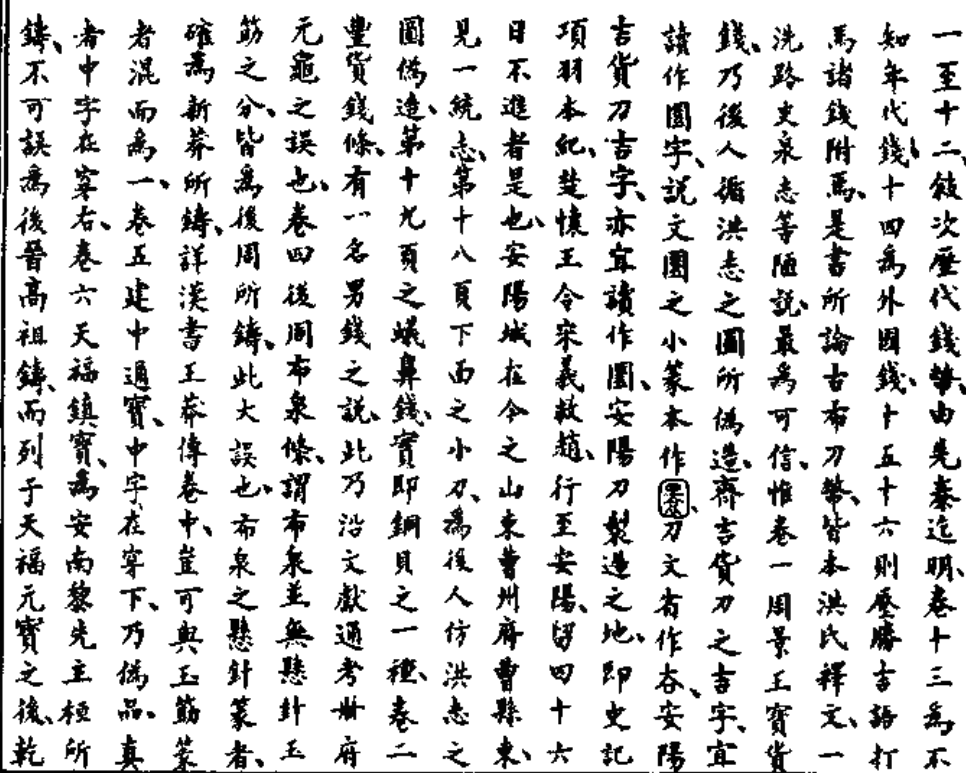 一至十二敍次歷代錢幣、由先秦迄明、卷十三爲不
知年代錢、十四爲外國錢、十五十六則壓勝吉語打
馬諸錢附焉、是書所論古布刀幣、皆本洪氏釋文、一
洗路史泉志等陋說、最爲可信、惟卷一周景王寶貨
錢、乃後人循洪志之圖所僞造、齊吉貨刀之吉字、宜
讀作圜字、說文圜之小篆本作、刀文省作㕣、安陽
吉貨刀吉字、亦宜讀作圜、安陽刀製造之地、卽史記
項羽本紀、楚懷王令宋義救趙、行至安陽、留四十六
日不進者是也、安陽城在今之山東曹州府曹縣東、
見一統志、第十八頁下面之小刀、爲後人仿洪志之
圖僞造、第十九頁之蟻鼻錢、實卽銅貝之一種、卷二
豐貨錢條、有一名男錢之說、此乃沿文獻通考冊府
元龜之誤也、卷四後周布泉條、謂布泉並無懸針玉
筯之分、皆爲後周所鑄、此大誤也、布泉之懸針篆者、
確爲新莽所鑄、詳漢書王莽傳卷中、豈可與玉筯篆
者混而爲一、卷五建中通寶、中字在穿下、乃僞品、眞
者中字在穿右、卷六天福鎮寶、爲安南黎先主桓所
鑄、不可誤爲後晉高祖鑄、而列于天福元寶之後、乾